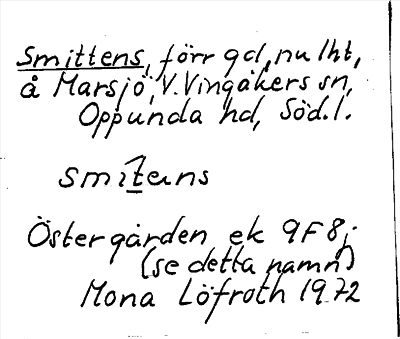 Smittens, förr gd, nu lht,
å Marsjö, V. Vingåkers sn,
Oppunda hd, Söd. l.
smìtens
Östergården ek 9F8j
(se detta namn)
Mona Löfroth 1972